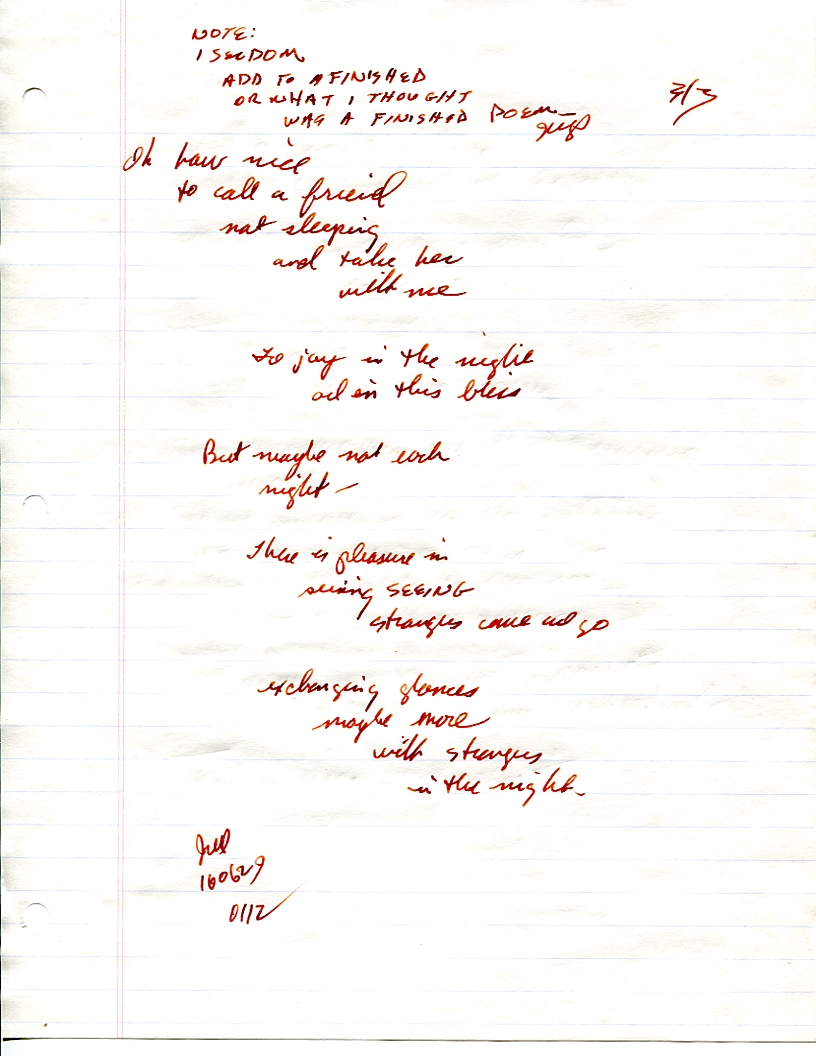 NOTE:
I SELDOM
ADD TO A FINISHED
OR WHAT I THOUGHT
WAS A FINISHED POEM
3/3
Oh how nice
to call a friend
not sleeping
and take her
with me
to joy in the night
and in this bliss
But maybe not each
night –
There is pleasure in
seeing SEEING
strangers come and go
exchanging glances
maybe more
with strangers
in the night.
160629
0112